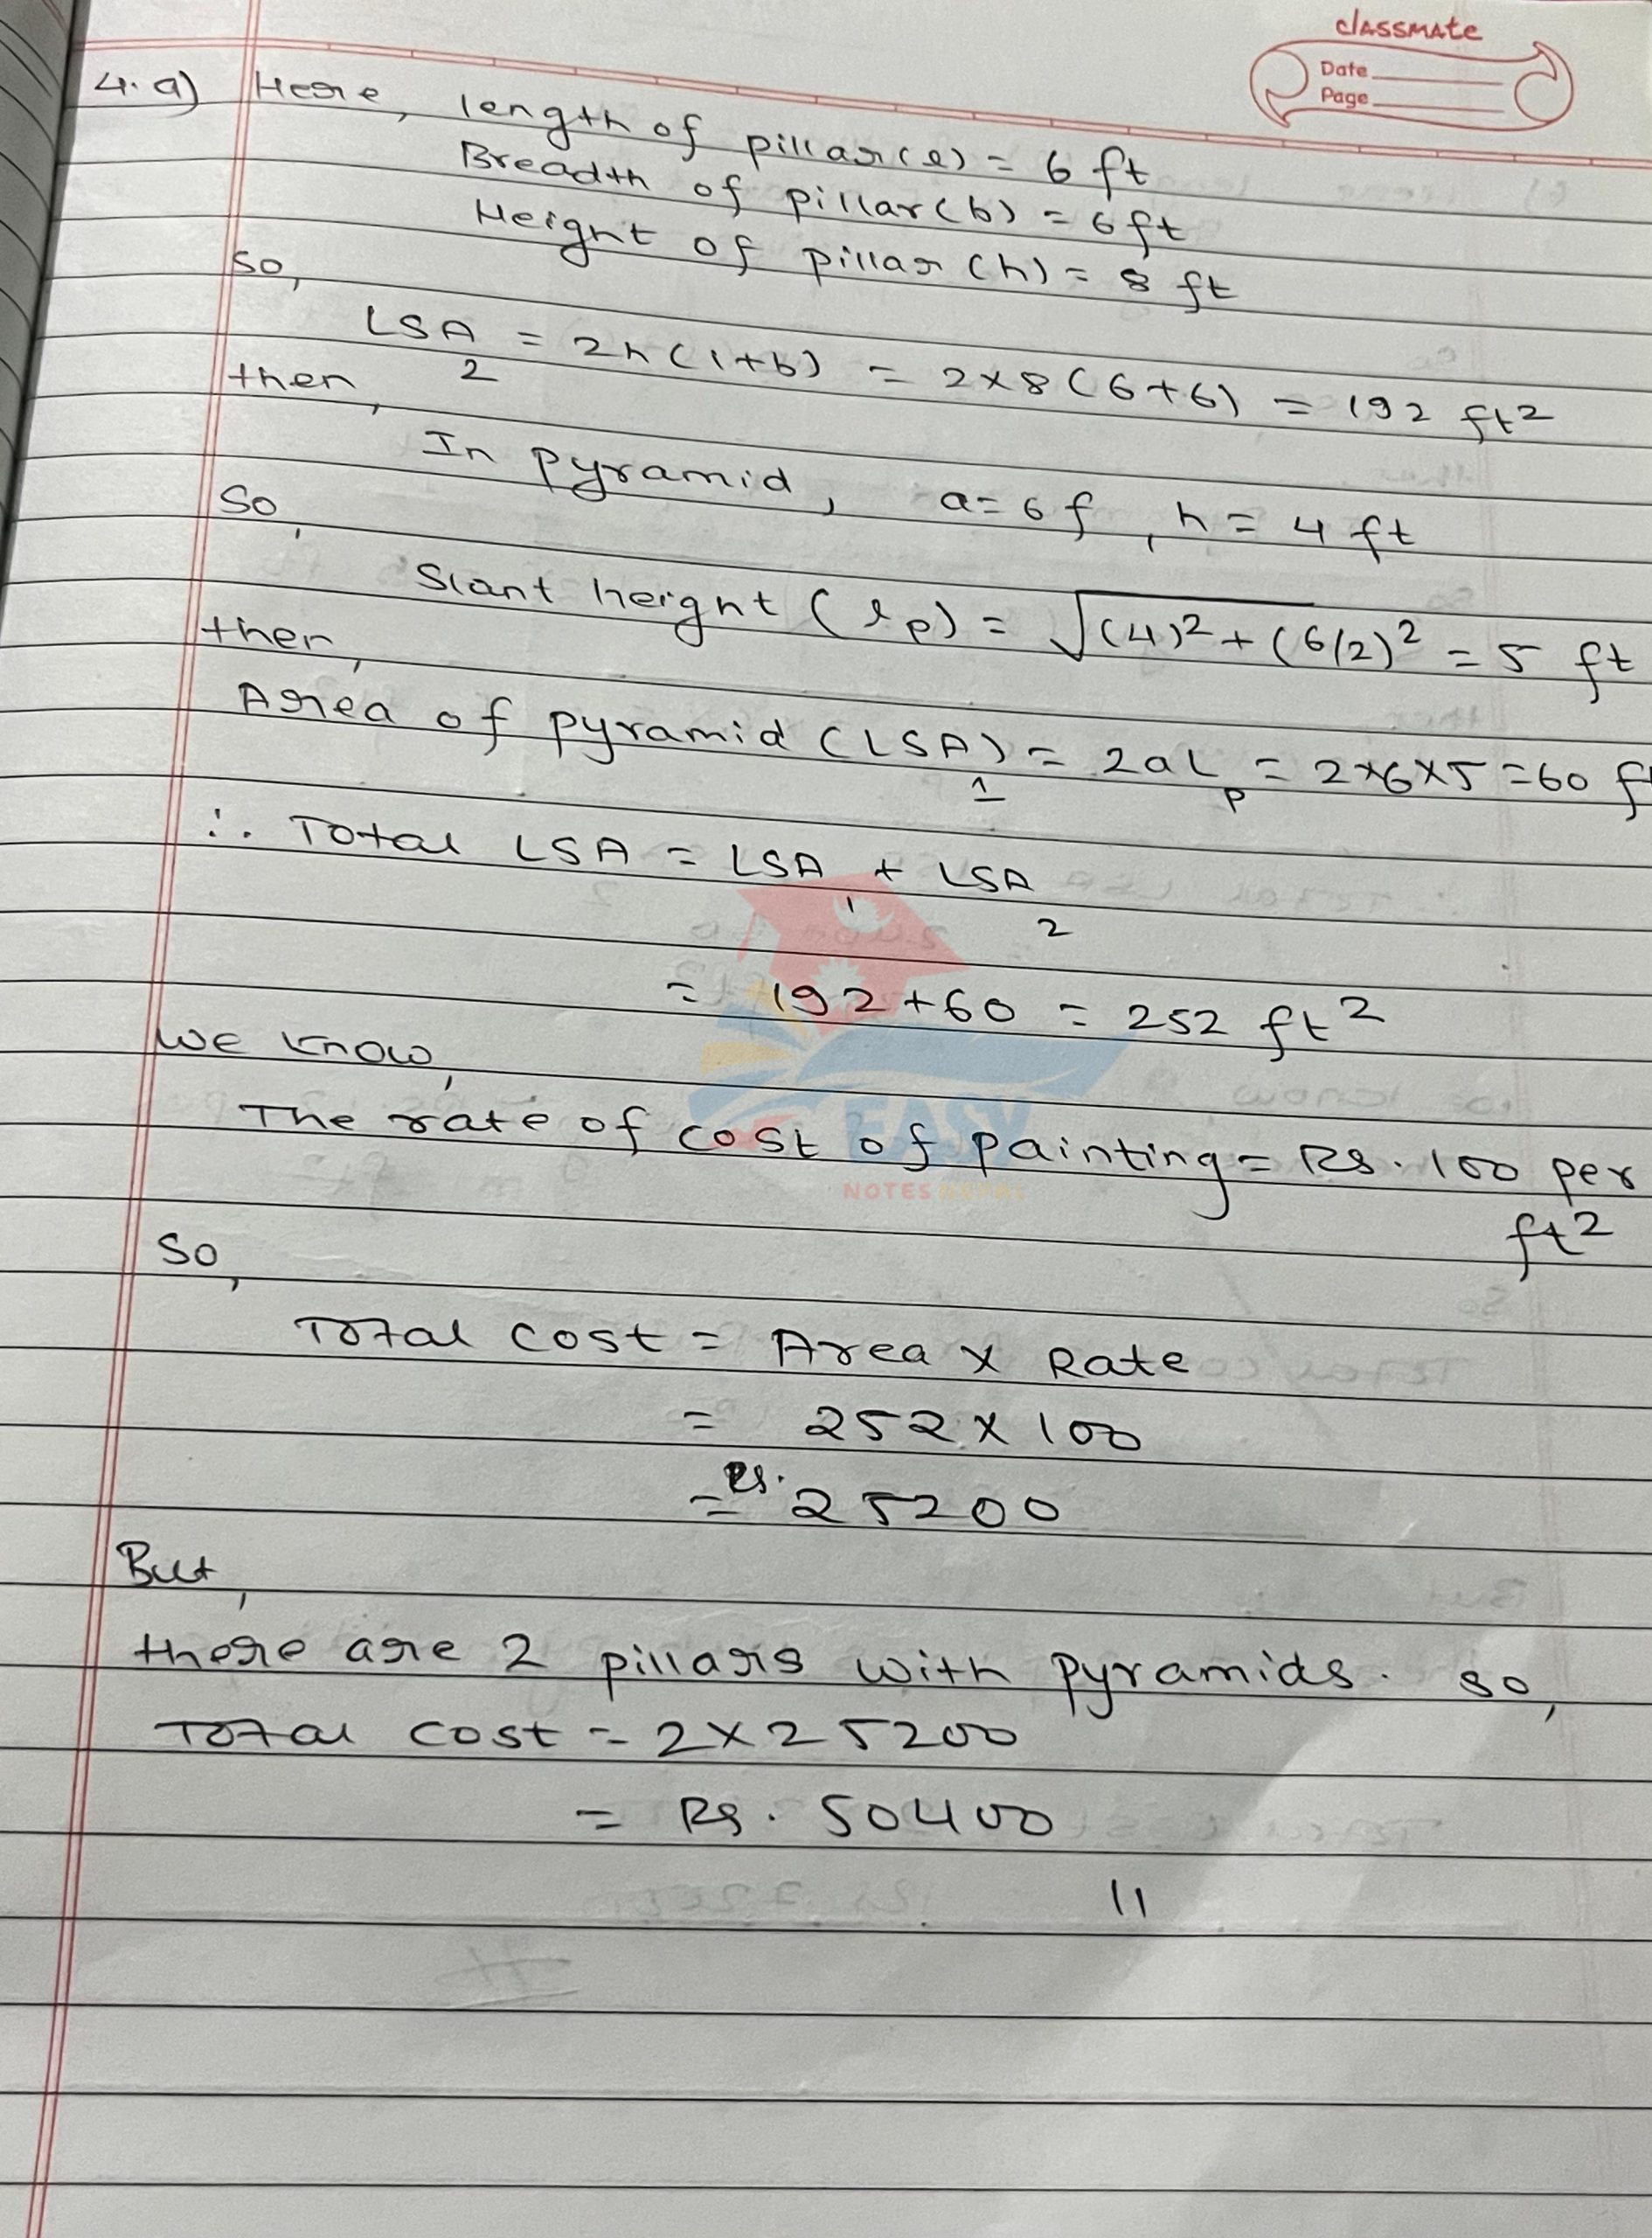 classmate
Date
Page
4.a) Here, length of pillar(l) = 6 ft
Breadth of pillar(b) = 6ft
Height of pillar (h) = 8 ft
so,
LSA2 = 2h(l+b) = 2×8(6+6) = 192 ft²
then,
In pyramid, a=6f, h = 4 ft
So,
Slant height (lp) = √(4)²+(6/2)² = 5 ft
then,
Area of pyramid (LSA)1 = 2aLp = 2×6×5=60 ft
∴ Total LSA = LSA1 + LSA2
= 192+60 = 252 ft²
We know,
The rate of cost of painting = Rs. 100 per
ft²
So,
Total cost = Area × Rate
= 252×100
= Rs. 25200
But,
there are 2 pillars with pyramids. so,
Total cost = 2×25200
= Rs. 50400
EASY
NOTES NEPAL